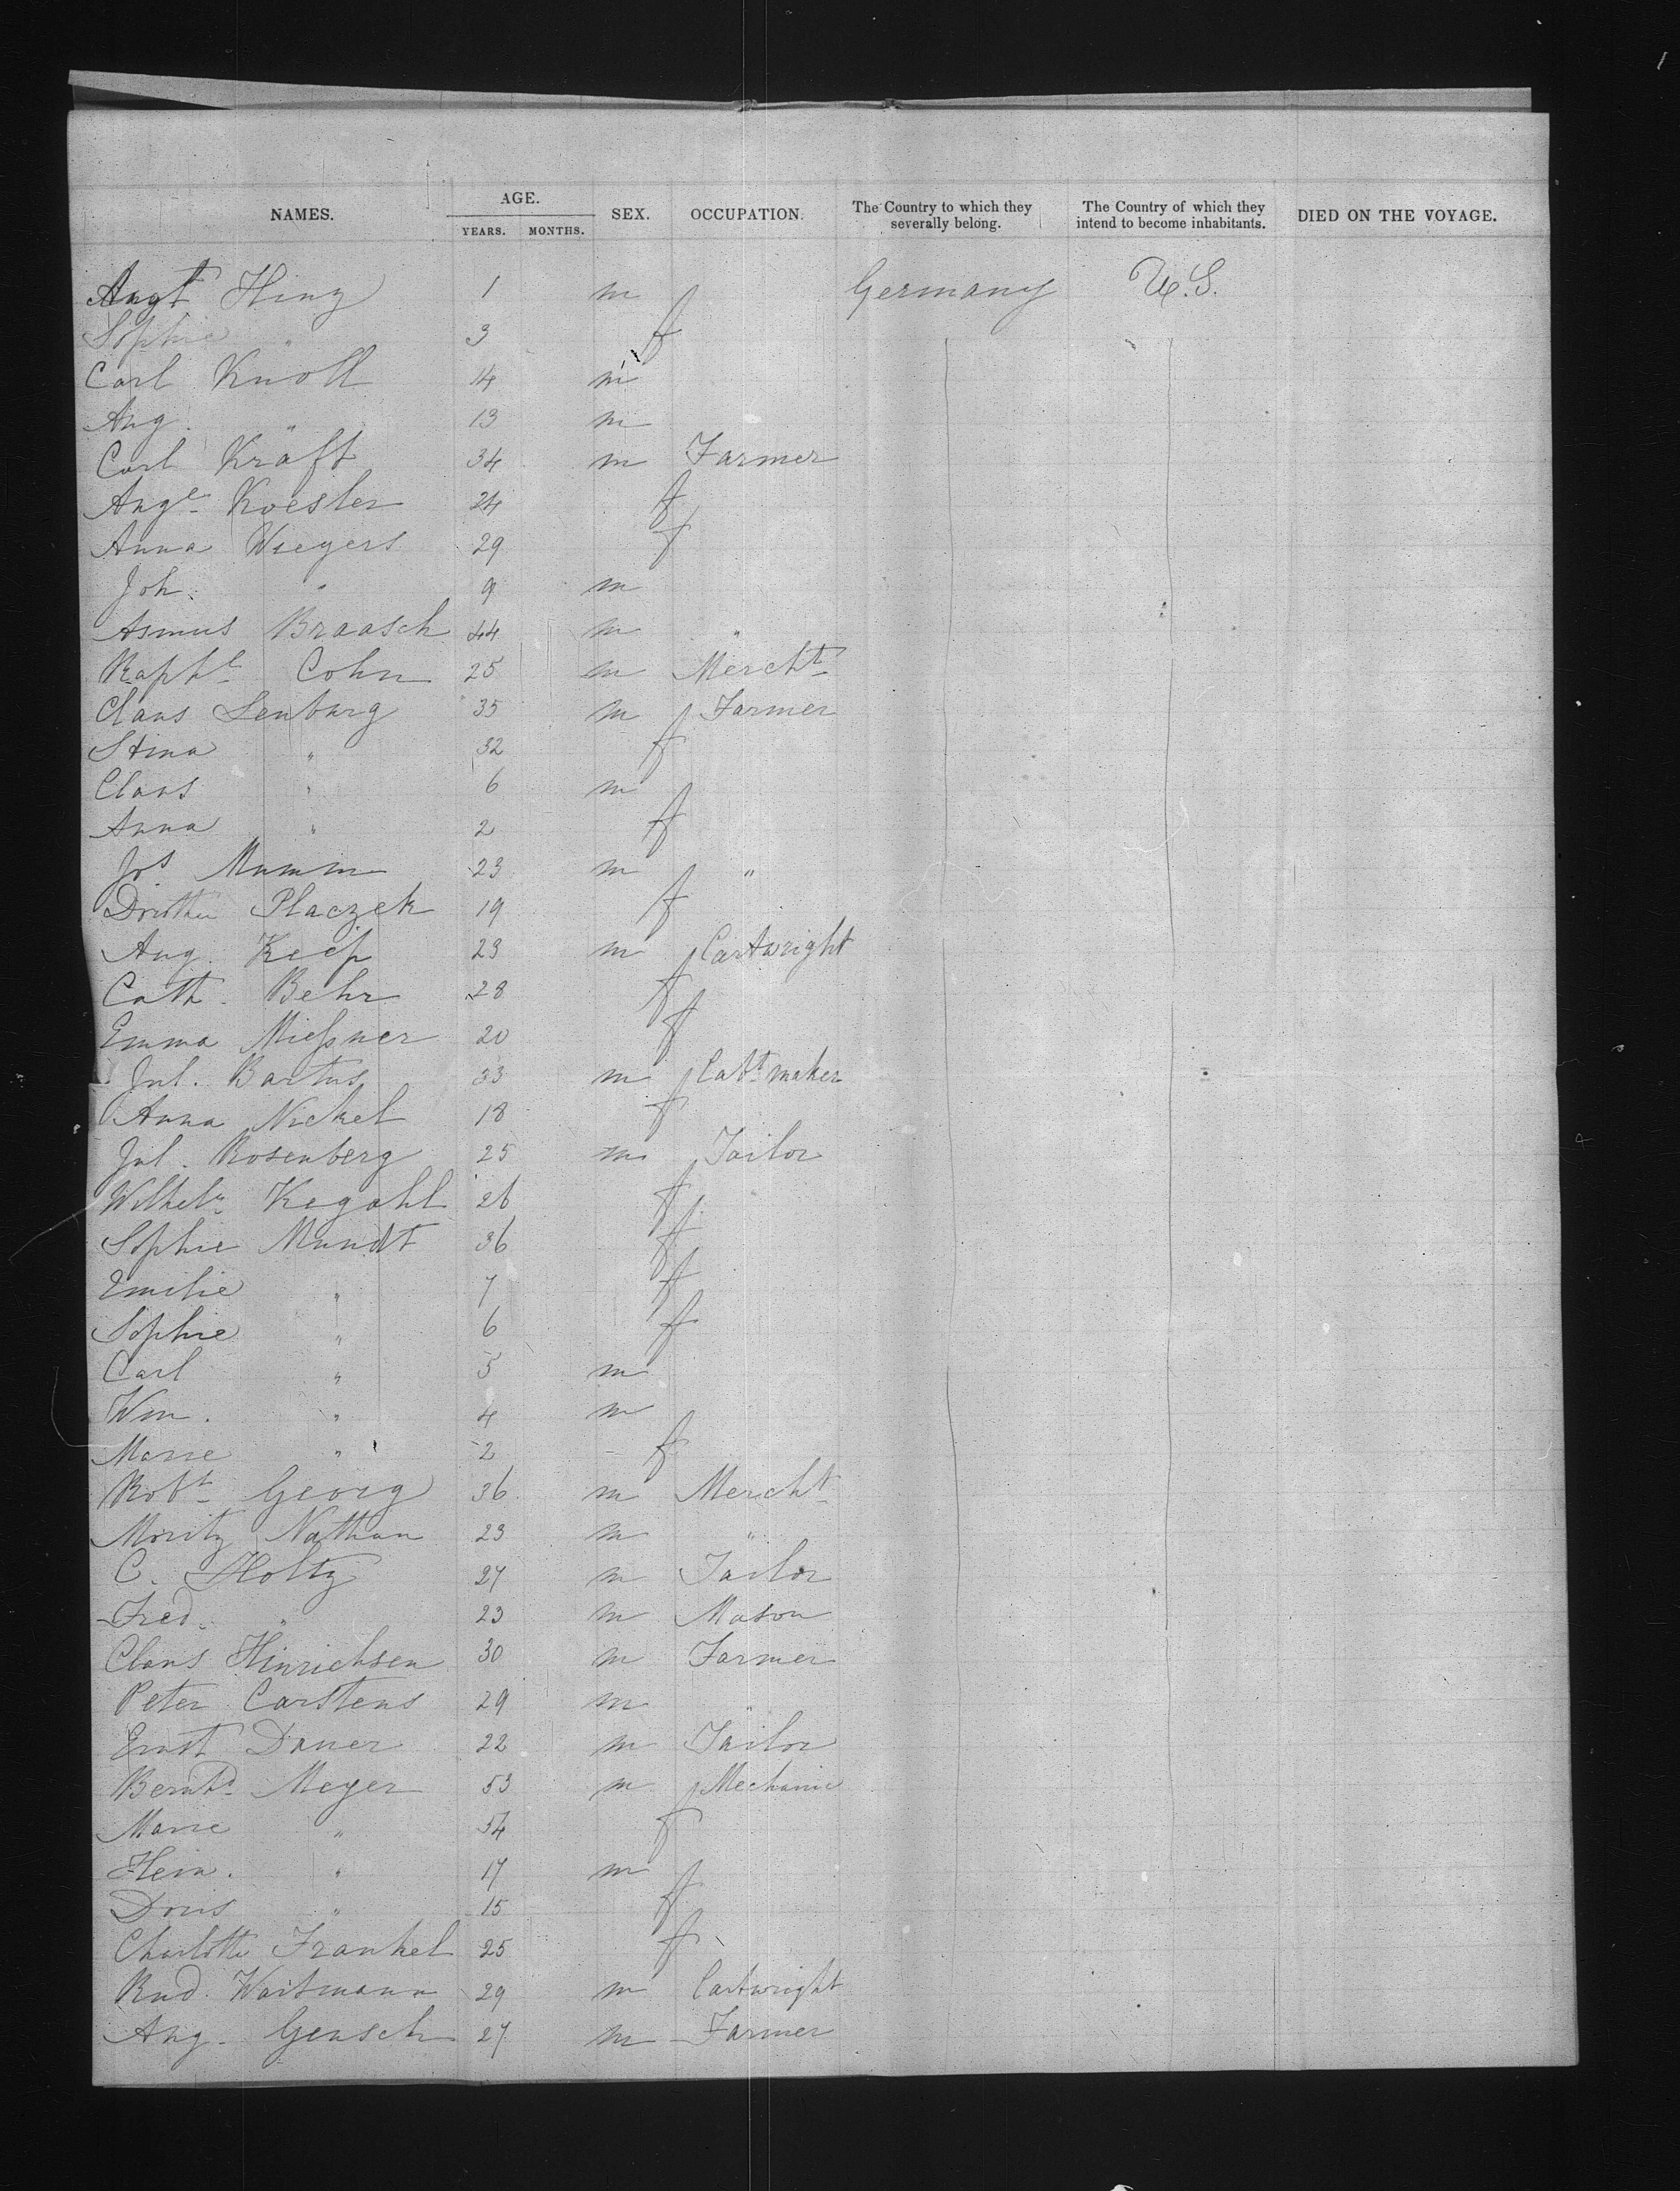 NAMES. AGE. YEARS. MONTHS. SEX. OCCUPATION. The Country to which they severally belong. The Country of which they intend to become inhabitants. DIED ON THE VOYAGE.
Augt Hinz 1 m Germany U.S.
Sophie " 3 f
Carl Knoll 14 m
Aug. " 13 m
Carl Kraft 34 m Farmer
Auge Koesler 24 f
Anna Wiegers 29 f
Joh. " 9 m
Asmus Braasch 44 m "
Raphl Cohn 25 m Mercht
Claus Lenburg 35 m Farmer
Stina " 32 f
Claus " 6 m
Anna " 2 f
Jos Mumm 23 m "
Dorothea Placzek 19 f
Aug. Keep 23 m Cartwright
Cath. Behr 28 f
Emma Mießner 20 f
Jul. Bartus 33 m Cabt maker
Anna Nickel 18 f
Jul. Rosenberg 25 m Tailor
Wilhelm Kegahl 26 f
Sophie Mundt 36 f
Emilie " 7 f
Sophie " 6 f
Carl " 5 m
Wm. " 4 m
Marie " 2 f
Robt Georg 36 m Mercht
Moritz Nathan 23 m "
C. Holtz 27 m Tailor
Fred. " 23 m Mason
Claus Hinrichsen 30 m Farmer
Peter Carstens 29 m "
Ernst Dauer 22 m Tailor
Bernhd Meyer 53 m Mechanic
Marie " 54 f
Hein. " 17 m
Doris " 15 f
Charlotte Frankel 25 f
Rud. Waitmann 29 m Cartwright
Aug. Gensch 27 m Farmer